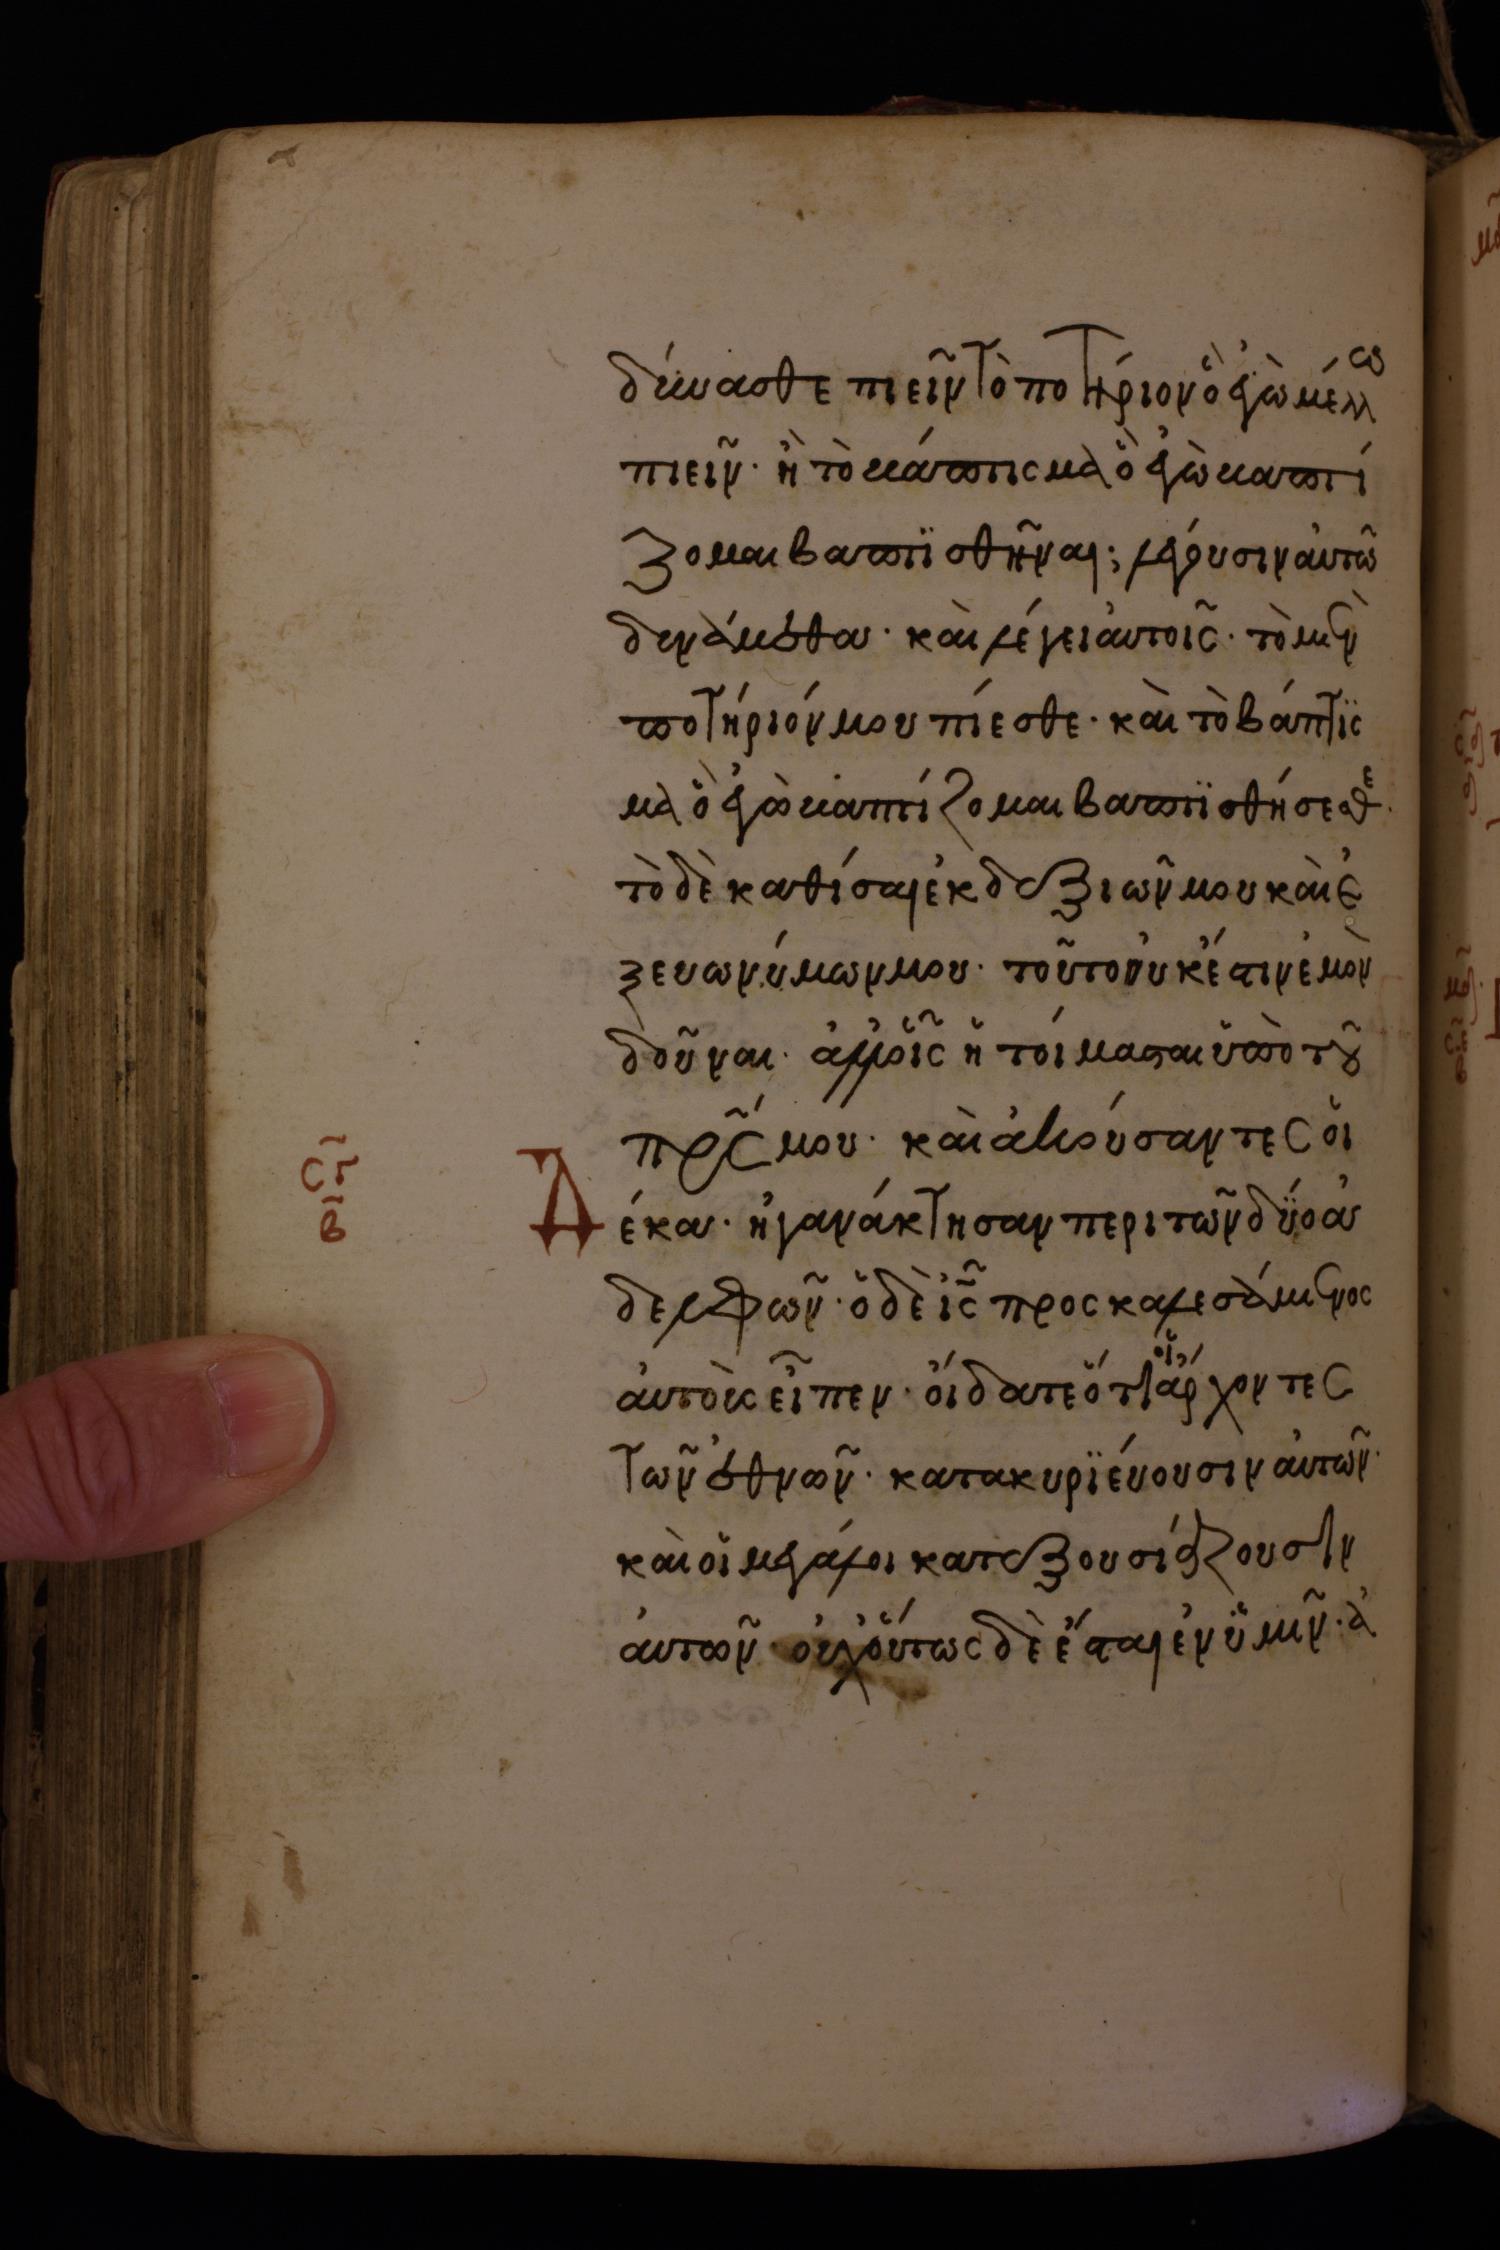 δύνασθε πιεῖν τὸ ποτήριον ὃ ἐγὼ μέλλω
πιεῖν· ἢ τὸ βάπτισμα ὃ ἐγὼ βαπτί
ζομαι βαπτϊσθῆναι; λέγουσιν αὐτῶ
δυνάμεθα· καὶ λέγει αὐτοῖς· τὸ μὲν
ποτήριόν μου πίεσθε· καὶ τὸ βάπτϊς
μα ὃ ἐγὼ βαπτίζομαι βαπτϊσθήσεσθε·
τὸ δὲ καθίσαι ἐκ δεξιῶν μου καὶ ἐ
ξ ευωνύμων μου· τοῦτο οὐκ ἔστιν ἐμὸν
δοῦναι· ἀλλ οἷς ἡτοίμασται ὑπὸ τοῦ
πρ̅ς μου· καὶ ἀκούσαντες οἱ
Δέκα· ἠγανάκτησαν περι τῶν δύο ἀ
δελφῶν· ὁ δὲ ι̅ς προσκαλεσάμενος
ἀυτοὺς εἶπεν· οἴδατε ὅτι οἱ ἄρχοντες
τῶν ἐθνῶν· κατακυρϊέυουσιν ἀυτῶν·
καὶ οἱ μεγάλοι κατεξουσιάζουσιν
ἀυτῶν· οὐχ οὕτως δὲ ἔσται ἐν ὑμῖν· ἀ
σ̅γ̅
β̅